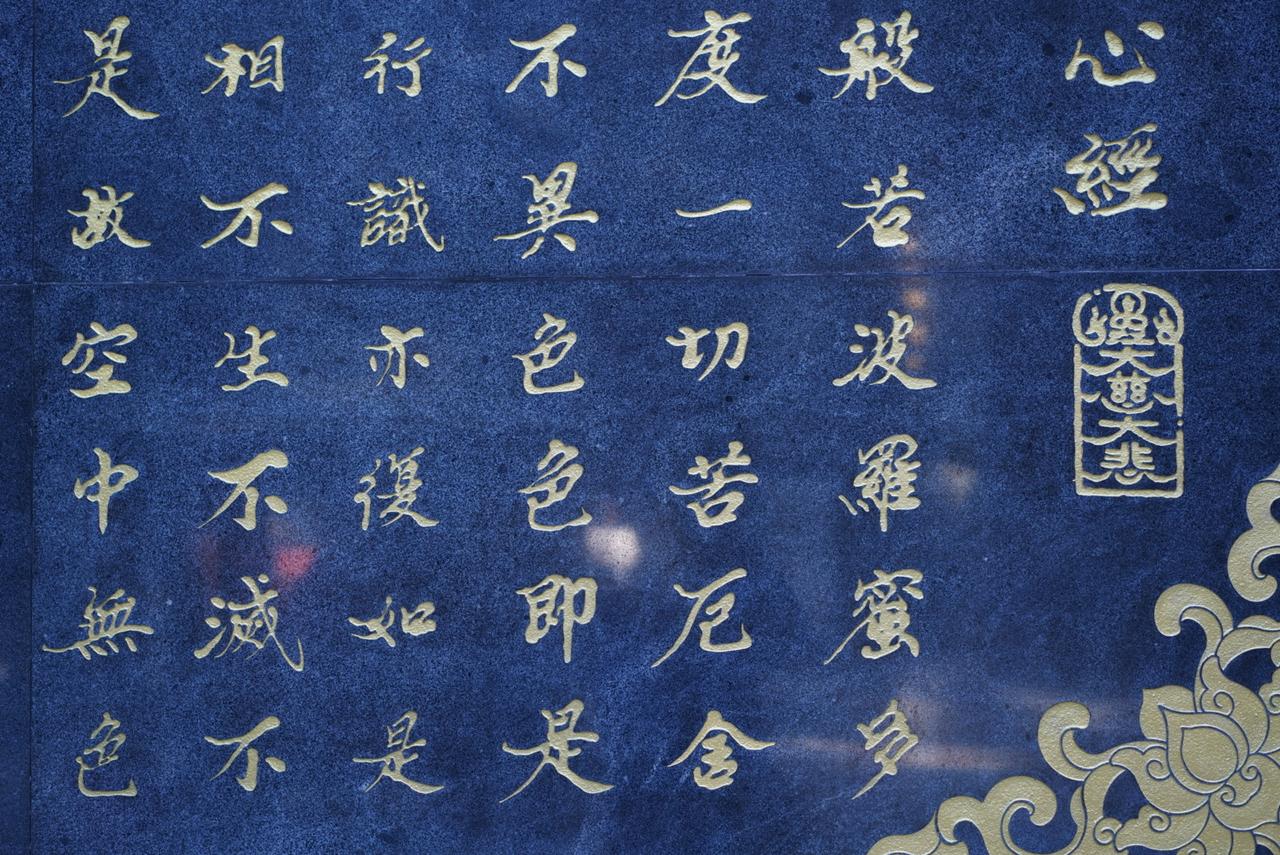 心經
大慈大悲
般若波羅蜜多
度一切苦厄舍
不異色色即是
行識亦復如是
相不生不滅不
是故空中無色